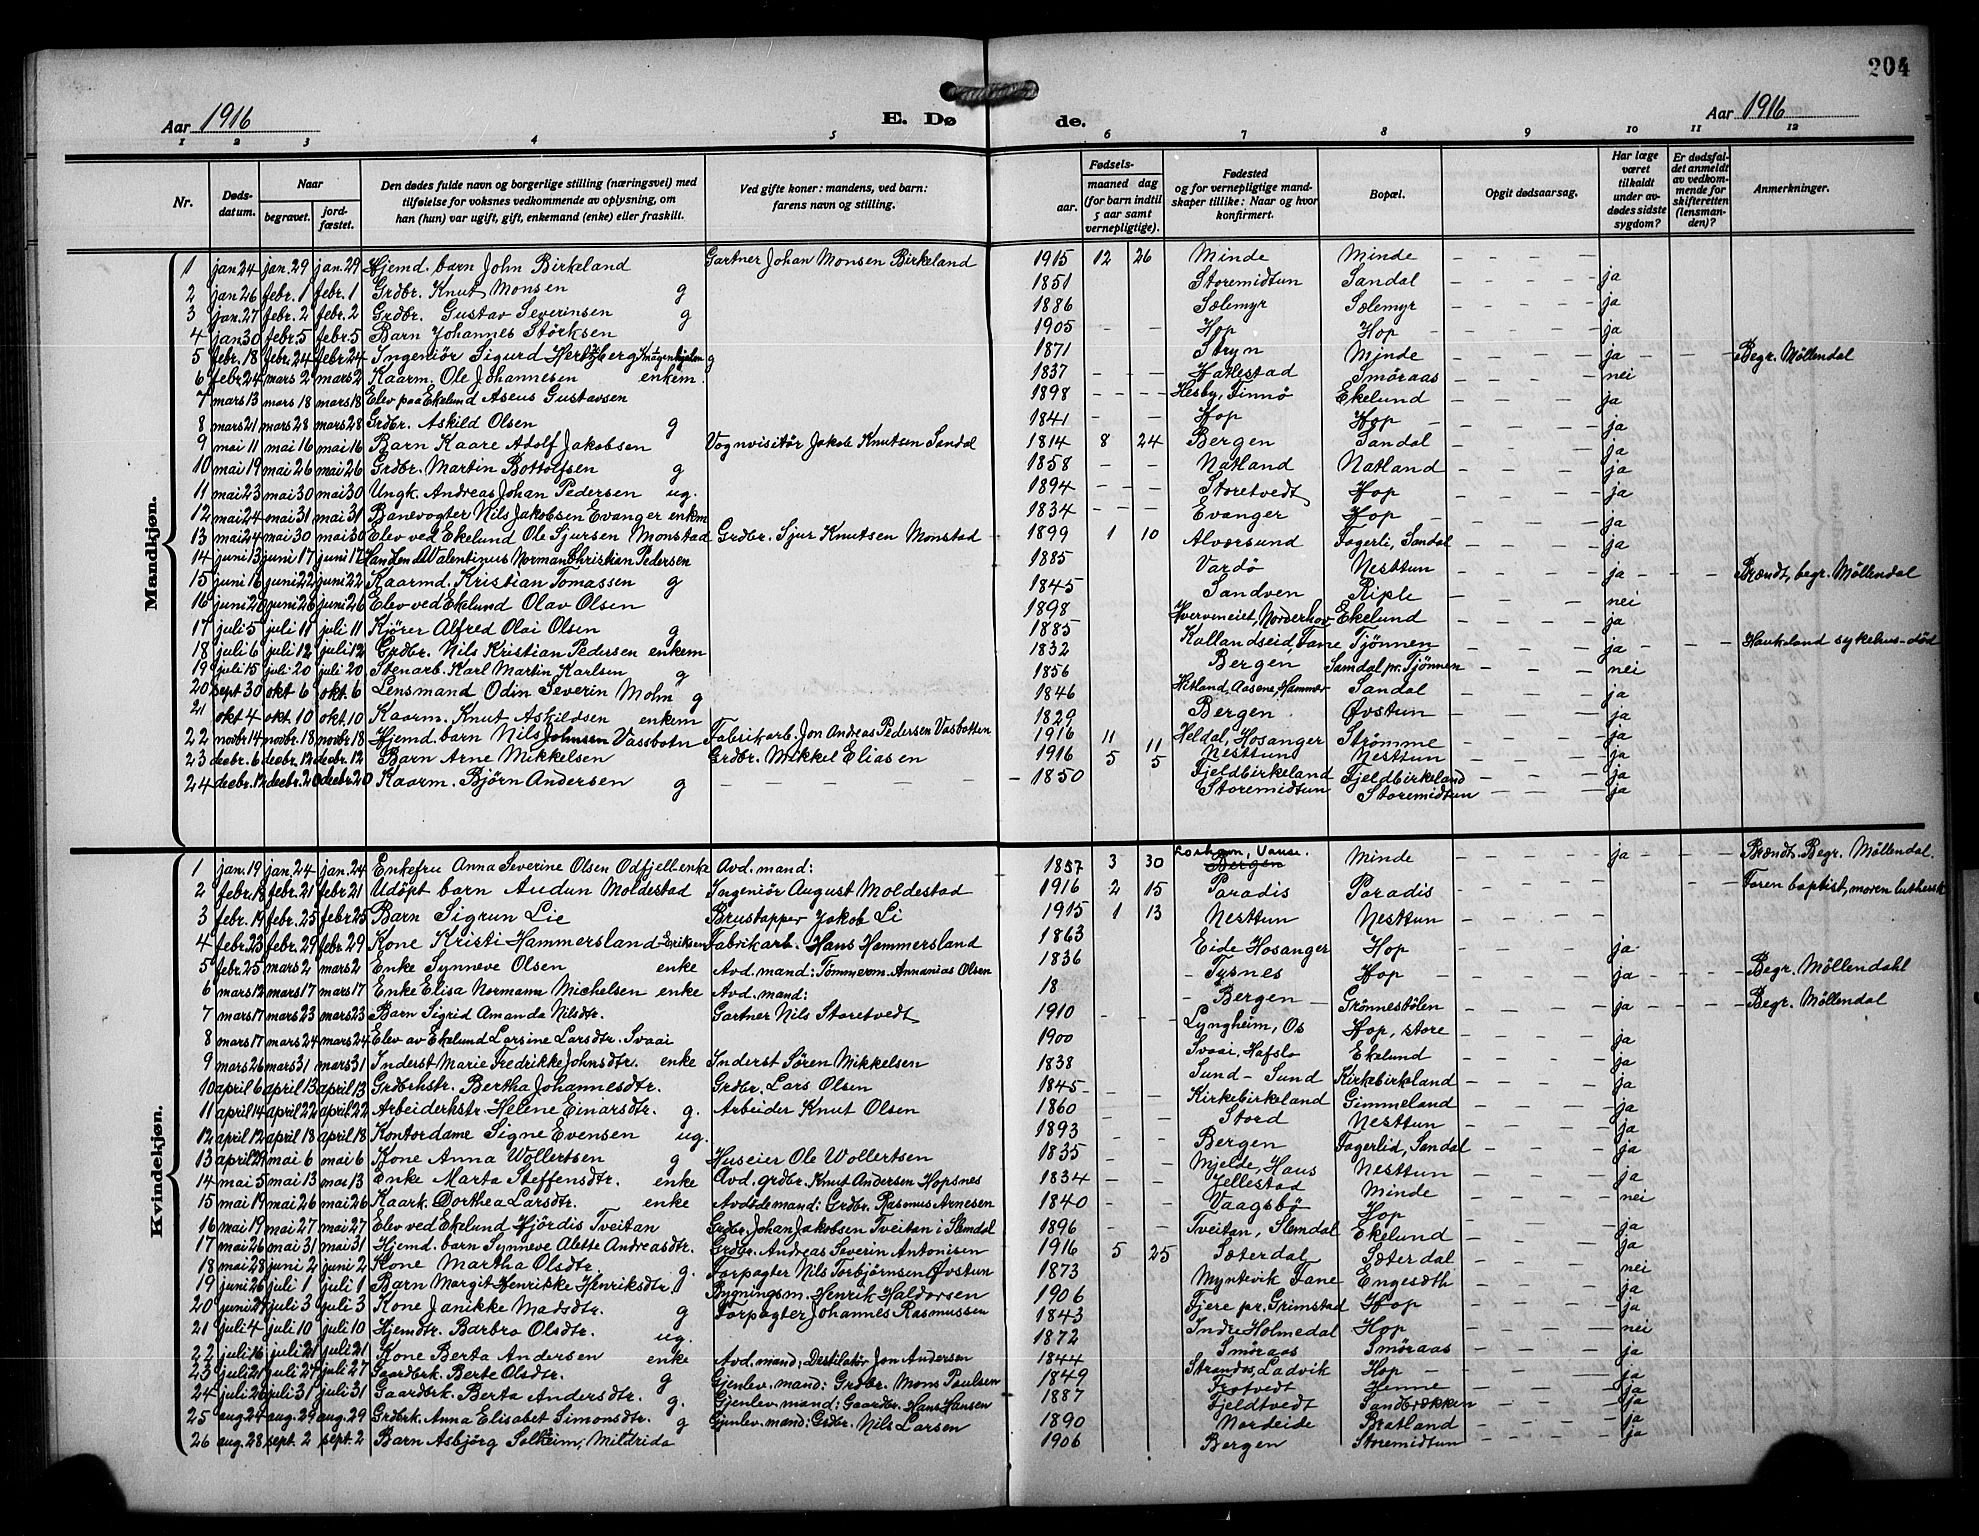 204
Aar 1916 E. Dø de. Aar 1916
1 2 3 4 5 6 7 8 9 10 11 12
Nr. Døds-datum. Naar begravet. jord-fæstet. Den dødes fulde navn og borgerlige stilling (næringsvei) med tilføielse for voksnes vedkommende av oplysning, om han (hun) var ugift, gift, enkemand (enke) eller fraskilt. Ved gifte koner: mandens, ved barn: farens navn og stilling. Fødsels- aar. maaned dag (for barn indtil 5 aar samt vernepligtige). Fødested og for vernepligtige mand-skaper tillike: Naar og hvor konfirmert. Bopæl. Opgit dødsaarsag. Har læge været tilkaldt under av-dødes sidste sygdom? Er dødsfal-det anmeldt av vedkom-mende for skifteretten (lensman-den)? Anmerkninger.
Mandkjøn.
1 jan. 24 jan. 29 jan. 29 Hjemd. barn John Birkeland Gartner Johan Monsen Birkeland 1915 12 26 Minde Minde
2 jan. 26 febr. 1 febr. 1 Grdbr. Knut Monsen g 1851 Storemidtun Sandal ja
3 jan. 27 febr. 2 febr. 2 Grdbr. Gustav Severinsen g 1886 Sælemyr Sælemyr ja
4 jan. 30 febr. 5 febr. 5 Barn Johannes Størksen 1905 Hop Hop ja
5 febr. 18 febr. 24 febr. 24 Ingeniør Sigurd Hertzberg g 1871 Stryn Minde ja Begr. Møllendal
6 febr. 24 mars 2 mars 2 Kaarm. Ole Johannesen enkem. 1837 Hatlestad Smøraas nei
7 mars 13 mars 18 mars 18 Elev paa Ekelund Aseus Gustavsen 1898 Hesby, Finnø Ekelund ja
8 mars 21 mars 28 mars 28 Grdbr. Askild Olsen g 1841 Hop Hop ja
9 mai 11 mai 16 mai 16 Barn Kaare Adolf Jakobsen Vognvisitør Jakob Knutsen Sandal 1814 8 24 Bergen Sandal ja
10 mai 19 mai 26 mai 26 Grdbr. Martin Bottolfsen g 1858 Natland Natland ja
11 mai 23 mai 30 mai 30 Ungk. Andreas Johan Pedersen ug. 1894 Storetvedt Hop ja
12 mai 24 mai 31 mai 31 Banevogter Nils Jakobsen Evanger enkem 1834 Evanger Hop ja
13 mai 24 mai 30 mai 30 Elev ved Ekelund Ole Sjursen Monstad Grdbr. Sjur Knutsen Monstad 1899 1 10 Alversund Fagerli, Sandal ja
14 juni 13 juni 17 juni 17 Handlend Valentinus Norman Christian Pedersen 1885 Vardø Nesttun ja Brændt, begr. Møllendal
15 juni 16 juni 22 juni 22 Kaarmd. Kristian Tomassen g 1845 Sandven Riple nei
16 juni 20 juni 26 juni 26 Elev ved Ekelund Olav Olsen 1898 Norderhov Ekelund ja
17 juli 5 juli 11 juli 11 Kjører Alfred Olai Olsen g 1885 Kallandseid, Fane Tjønnen ja Haukeland sykehus-död
18 juli 6 juli 12 juli 12 Grdbr. Nils Kristian Pedersen enkem 1832 Bergen Samdal pr. Tjønnen nei
19 juli 15 juli 20 juli 20 Stenarb. Karl Martin Karlsen g 1856 Hetland, Aasene, Hammer Sandal ja
20 sept. 30 okt 6 okt. 6 Lensmand Odin Severin Mohn g 1846 Bergen Øvstun ja
21 okt 4 okt. 10 okt. 10 Kaarm. Knut Askildsen enkem 1829 Heldal, Hosanger Strømme ja
22 novbr. 14 novbr. 18 novbr. 18 Hjemd. barn Nils Johnsen Vassbotn Fabrikarb. Jon Andreas Pedersen Vasbotten 1916 11 11 Nesttun Nesttun ja
23 decbr. 6 decbr. 12 decbr. 12 Barn Arne Mikkelsen Grdbr. Mikkel Eliasen 1916 5 5 Fjeldbirkeland Fjeldbirkeland ja
24 decbr. 12 decbr. 20 decbr. 20 Kaarm. Bjørn Andersen g 1850 Storemidtun Storemidtun ja
Kvindekjøn.
1 jan. 19 jan. 24 jan. 24 Enkefru Anna Severine Olsen Odfjell enke Avd. mand: 1857 3 30 Bergen Minde ja Brændt. Begr. Møllendal.
2 febr. 18 febr. 21 febr. 21 Udöpt barn Audun Moldestad Ingeniør August Moldestad 1916 2 15 Paradis Paradis Faren baptist, moren luthersk
3 febr. 19 febr. 25 febr. 25 Barn Sigrun Lie Brustapper Jakob Li 1915 1 13 Nesttun Nesttun
4 febr. 23 febr. 29 febr. 29 Kone Kristi Hammersland Eriksen Fabrikarb. Hans Hammersland 1863 Eide Hosanger Hop ja
5 febr. 25 mars 2 mars 2 Enke Synneve Olsen enke Avd. mand: Tømmerm. Annanias Olsen 1836 Tysnes Hop ja Begr. Møllendahl
6 mars 12 mars 17 mars 17 Enke Elisa Normann Michelsen enke Avd. mand: 18 Bergen Grønnestølen ja Begr. Møllendal
7 mars 17 mars 23 mars 23 Barn Sigrid Amanda Nilsdtr. Gartner Nils Storetvedt 1910 Lyngheim, Os Hop, store ja
8 mars 17 mars 24 mars 24 Elev av Ekelund Larsine Larsdtr. Svaai 1900 Svaai, Hafslo Ekelund ja
9 mars 26 mars 31 mars 31 Inderst Marie Fredrikke Johnsdtr. enke Inderst Søren Mikkelsen 1838 Sund - Sund Kirkebirkeland ja
10 april 6 april 13 april 13 Grdbrkstr. Bertha Johannesdtr. Grdbr. Lars Olsen 1845 Kirkebirkeland Gimmeland ja
11 april 14 april 22 april 22 Arbeiderkstr. Helene Einarsdtr. g. Arbeider Knut Olsen 1860 Stord Nesttun ja
12 april 12 april 18 april 18 Kontordame Signe Evensen ug. 1893 Bergen Fagerlid, Sandal ja
13 april 29 mai 6 mai 6 Kone Anna Wollertsen g Huseier Ole Wollertsen 1835 Mjelde, Haus Nesttun ja
14 mai 5 mai 13 mai 13 Enke Marta Steffensdtr. enke Avd. grdbr. Knut Andersen Hopsnes 1834 Jellestad Minde nei
15 mai 19 mai 26 mai 26 Kaark. Dorthea Larsdtr. enke Avdöde mand: Grdbr. Rasmus Arnesen 1840 Vaagsbø Hop ja
16 mai 19 mai 27 mai 27 Elev ved Ekelund Hjördis Tveitan Grdbr. Johan Jakobsen Tveitan i Slemdal 1896 Tveitan, Slemdal Ekelund ja
17 mai 26 mai 31 mai 31 Hjemd. barn Synneve Alette Andreasdtr. Grdbr. Andreas Severin Antonisen 1916 5 25 Sæterdal Sæterdal nei
18 mai 28 juni 2 juni 2 Kone Martha Olsdtr. g. Forpagter Nils Torbjørnsen Øvstun 1873 Myntevik Fane Engesæth ja
19 juni 26 juli 1 juli 1 Barn Margit Henrikke Henriksdtr. Bygningsm. Henrik Haldorsen 1906 Fjere pr. Grimstad Hop ja
20 juni 27 juli 3 juli 3 Kone Janikke Madsdtr. g Forpagter Johannes Rasmussen 1843 Indre Holmedal Hop nei
21 juli 4 juli 10 juli 10 Hjemdtr. Barbro Olsdtr. ug. 1872 Smøraas Smøraas ja
22 juli 16 juli 21 juli 21 Kone Berta Andersen enke Avd. mand: Destilatör Jon Andersen 1844 Ladvik Hop ja
23 juli 21 juli 27 juli 27 Gaardbrk. Berte Olsdtr. g Gjenlev. mand: Grdbr. Mons Paulsen 1849 Trotvedt Henne ja
24 juli 26 juli 31 juli 31 Gaardbrk. Berta Andersdtr. g. Gjenlev mand: Gaardbr. Hans Hansen 1887 Fjeldtvedt Sandbrækken ja
25 aug. 24 aug. 29 aug. 29 Grdbrk. Anna Elisabet Simonsdtr. g Gjenlev. mand: Grdbr. Nils Larsen 1890 Nordeide Bratland ja
26 aug. 28 sept. 2 sept. 2 Barn Asbjörg Solheim, Mildrida 1906 Bergen Storemidtun ja